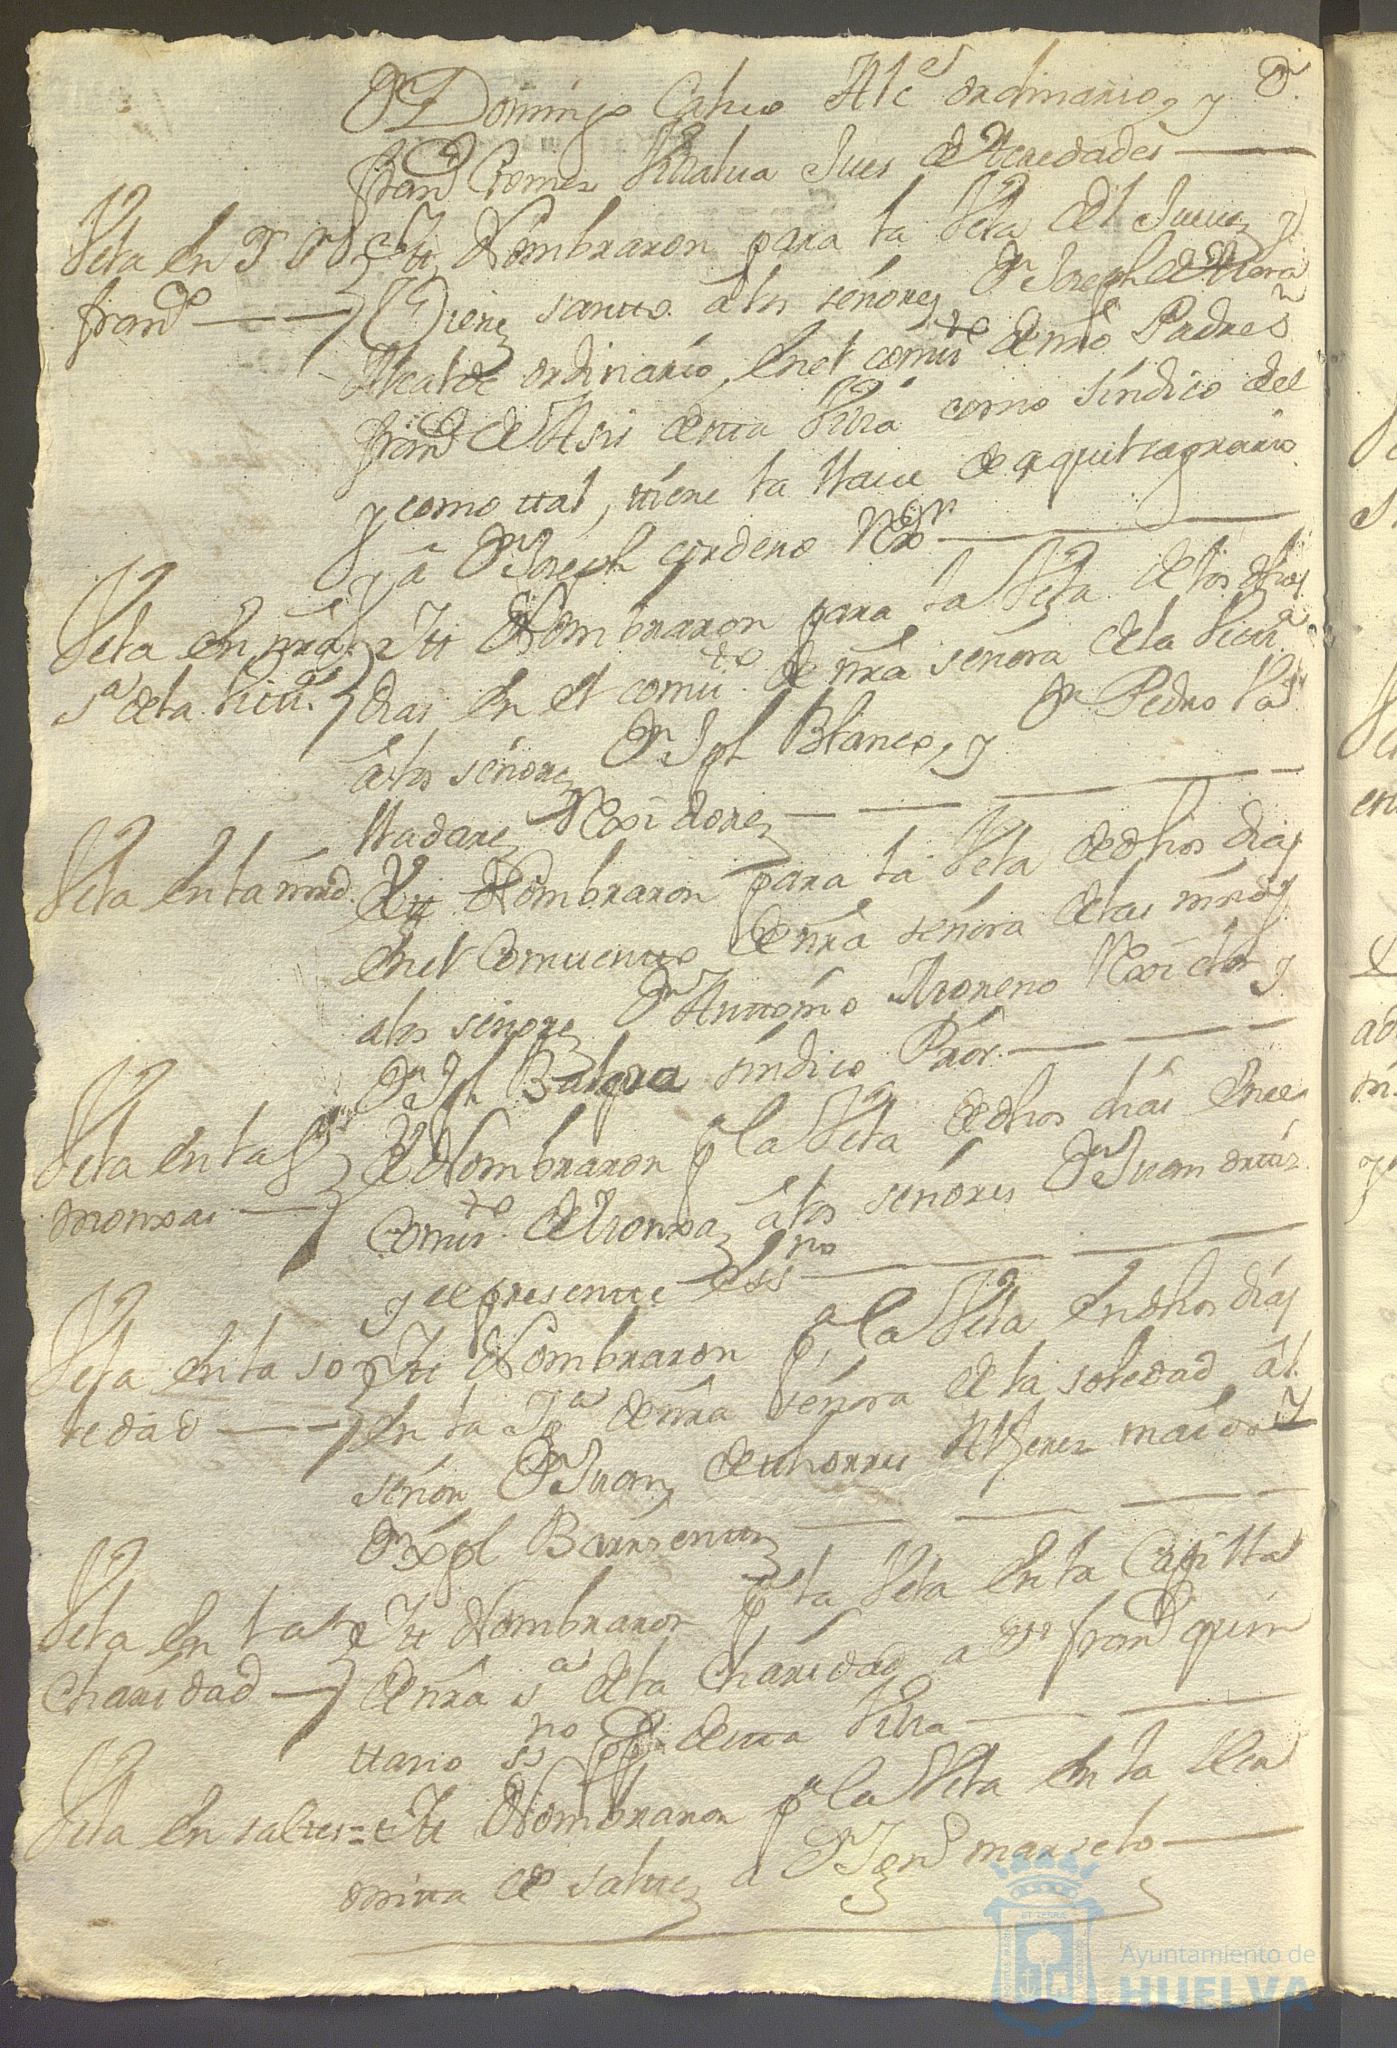 Dn Domingo Calvo Alces ordinarios, y Dn
Franco Gomez Villalua Jues de Heredades
Vela en Sr Sn
Franco
Itt Nombraron para la Vela del Juevez y
Vierne santto a los señores Dn Joseph de Mora
Alcalde ordinario, en el comvto de nro Padre Sn
Franco de Asis destta Villa como síndico del
y como ttal, ttiene la llave de aquel sagrario
y a Dn Joseph cordero Rexor
Vela en nra
Sa de la Victa
Itt Nombraron para la Vela de los dhos
dias en el comvto de nra señora de la Victa
a los señores Dn Jph Blanco, y Dn Pedro Va
lladares Rexidores
Vela en la mrd.
Itt Nombraron para la Vela de dhos dias
en el Comventto de nra señora de las mrds
a los señores Dn Anttonio Moreno Rexidor y
Dn Jph síndico Pror.
Vela en las
monxas
Itt Nombraron pa la Vela de dhos dias en el
Comvto de Monxas a los señores Dn Juan orttiz
y el presentte Essno
Vela en la so
ledad
Itt Nombraron pa la Vela en dhos dias
en la Iga de nra señora de la soledad al
señor Dn Juan de tthorres Alferez maior y
Dn Xpl
Vela en la
Charidad
Itt Nombraron pa la Vela en la Capilla
de nra sa de la Charidad a Dn Franco quin
ttero ssno pp destta Villa
Vela en saltes =
Itt Nombraron pa la Vela en la Her
mitta de saltes a Dn marselo
Ayuntamiento de
HUELVA